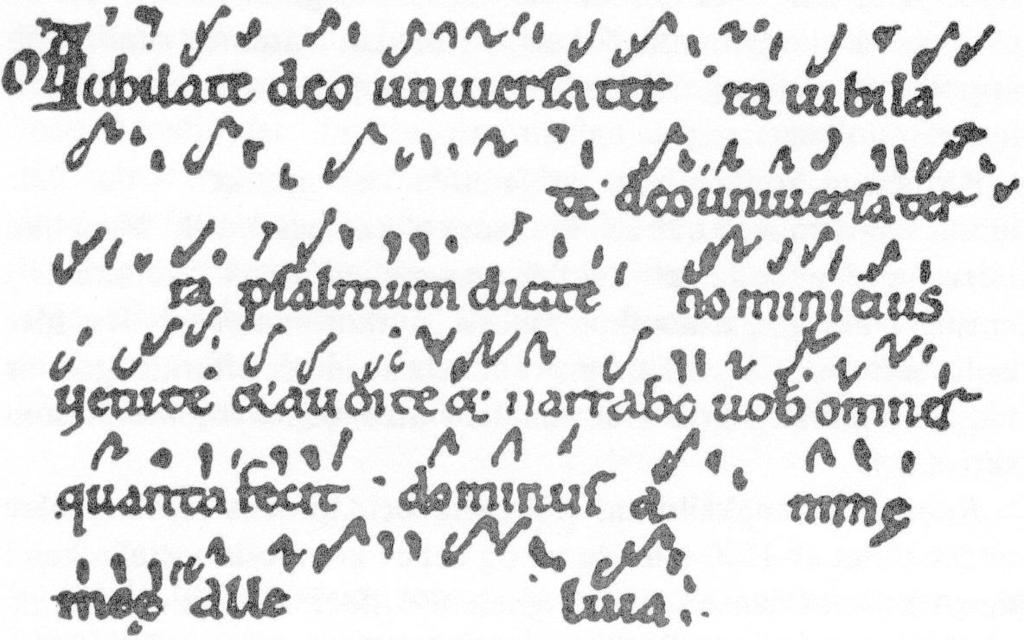 Iubilate deo uniuersa ter ra iubila
te deo uniuersa ter
ra psalmum dicite nomini eius
uenite & audite & narrabo uob omns
quanta fecit dominus a nimę
męę alle luia.